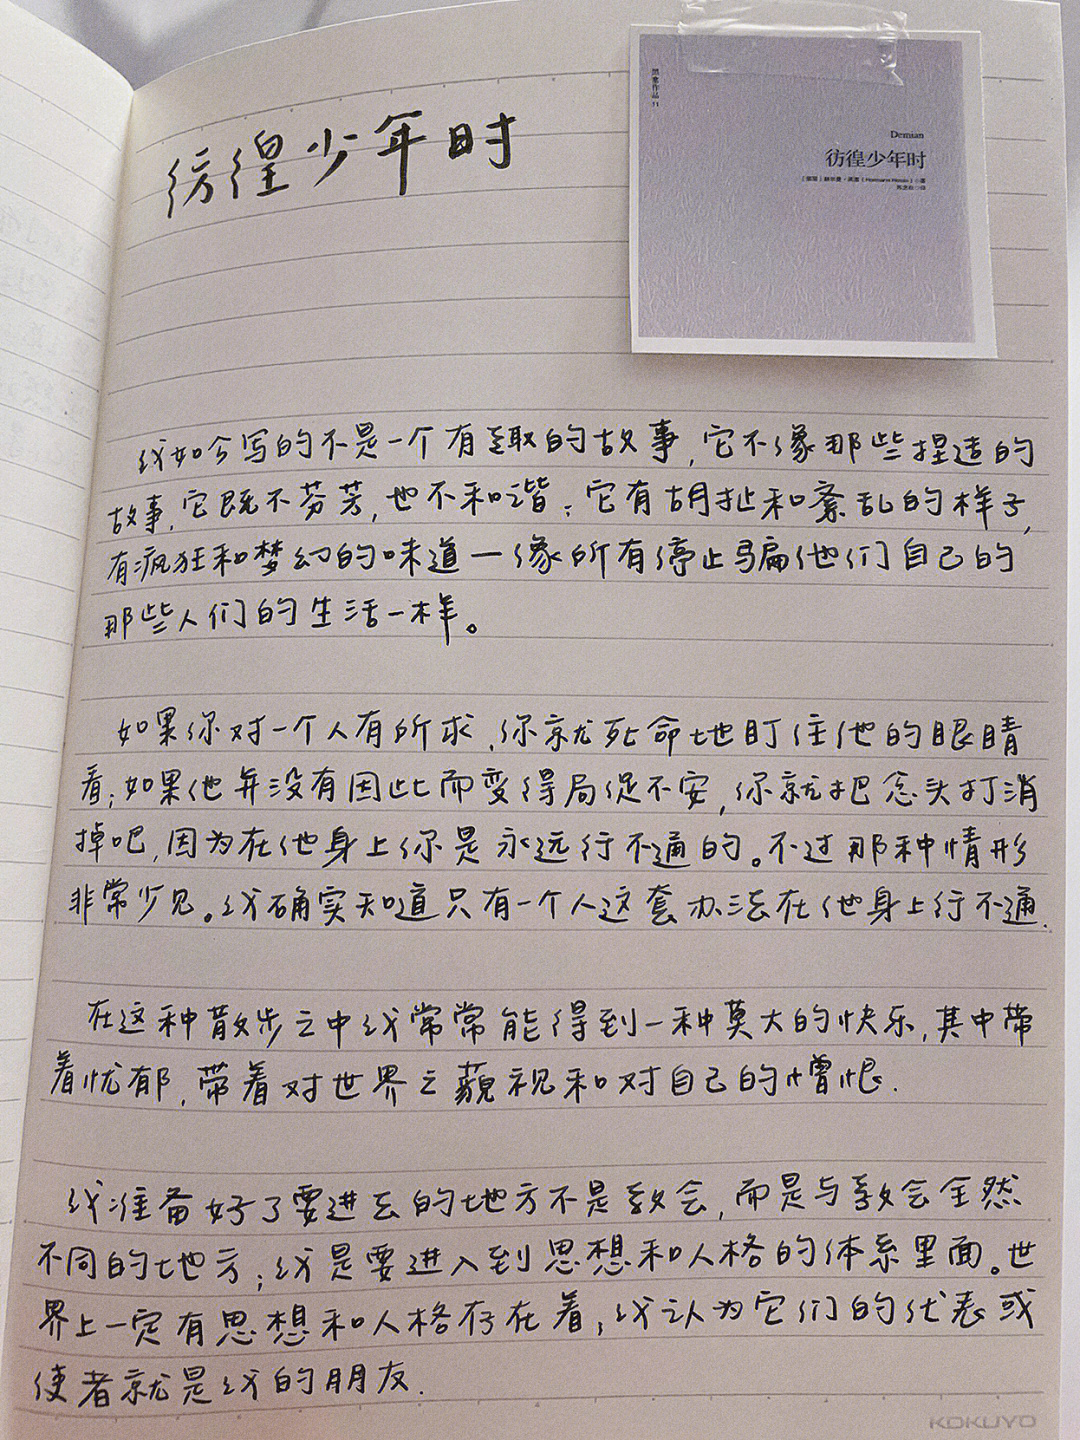 彷徨少年时
黑塞作品
Demian
彷徨少年时
我如今写的不是一个有趣的故事,它不像那些捏造的
故事,它既不芬芳,也不和谐;它有胡扯和紊乱的样子,
有疯狂和梦幻的味道一像所有停止骗他们自己的
那些人们的生活一样。
如果你对一个人有所求,你就死命地盯住他的眼睛
看;如果他并没有因此而变得局促不安,你就把念头打消
掉吧,因为在他身上你是永远行不通的。不过那种情形
非常少见。我确实知道只有一个人这套办法在他身上行不通.
在这种散步之中我常常能得到一种莫大的快乐,其中带
着忧郁,带着对世界之藐视和对自己的憎恨.
我准备好了要进去的地方不是教会,而是与教会全然
不同的地方;我是要进入到思想和人格的体系里面。世
界上一定有思想和人格存在着,我认为它们的代表或
使者就是我的朋友.
KOKUYO